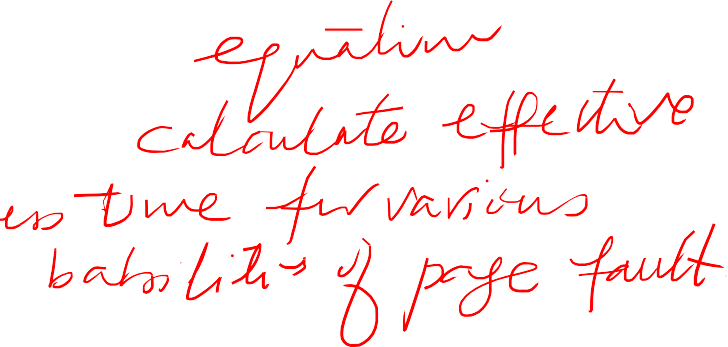 equation
calculate effective
ess time for various
babilities of page fault